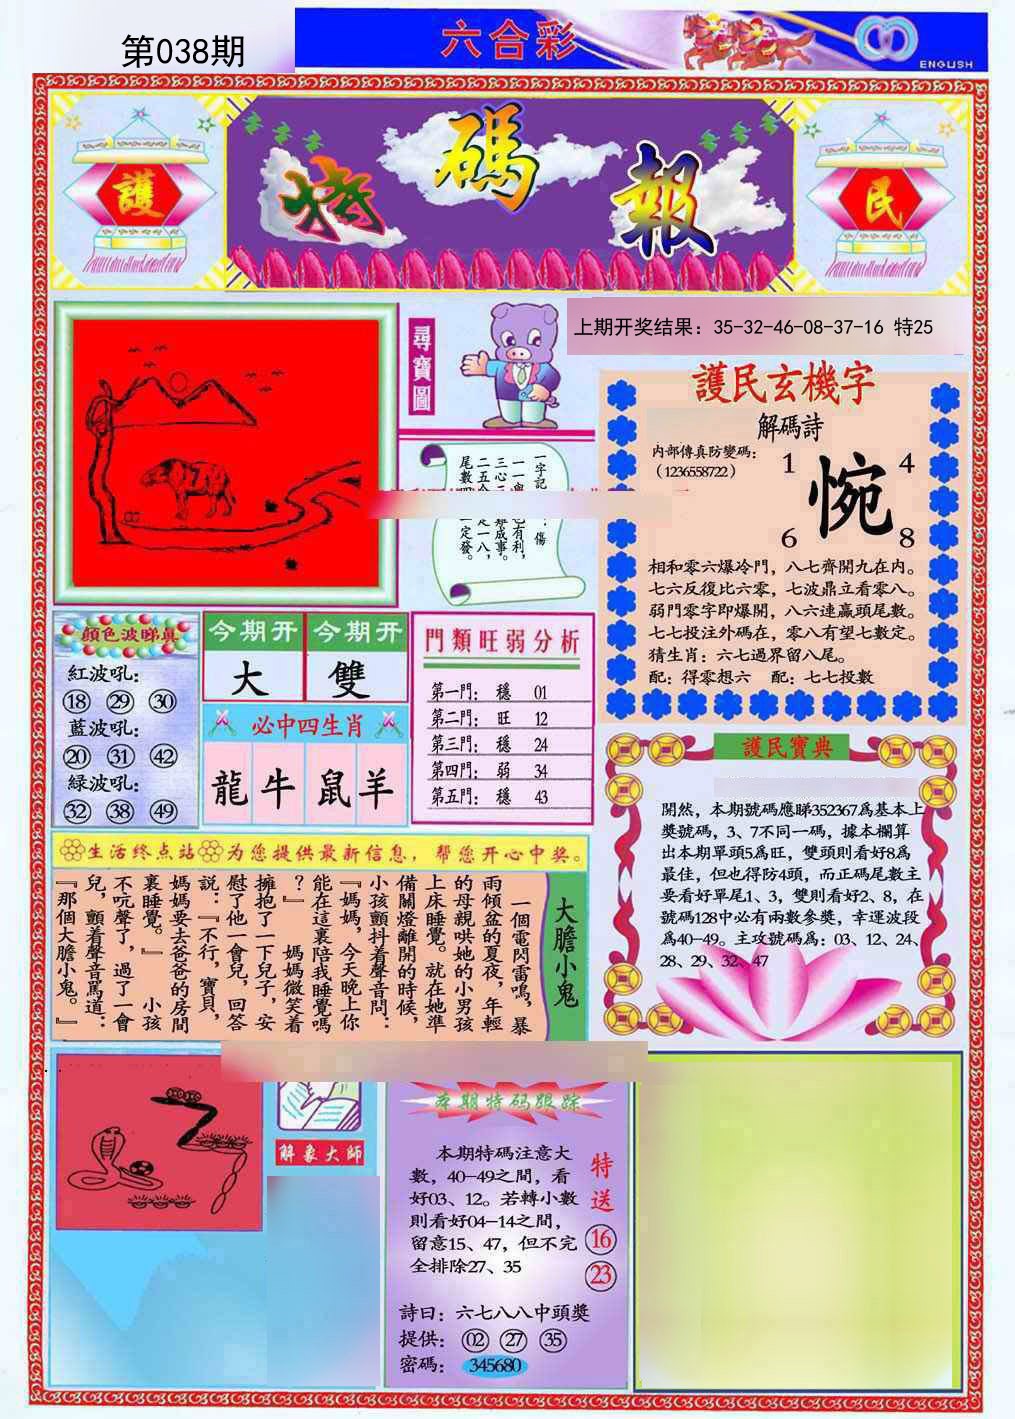 第038期
六合彩
ENGLISH
護
特碼報
民
尋寶圖
上期开奖结果：35-32-46-08-37-16 特25
護民玄機字
解碼詩
内部傳真防變碼：
（1236558722）
1
4
惋
6
8
相和零六爆冷門，八七齊開九在内。
七六反復比六零，七波鼎立看零八。
弱門零字即爆開，八六連贏頭尾數。
七七投注外碼在，零八有望七數定。
猜生肖：六七過界留八尾。
配：得零想六 配：七七投數
顔色波睇真
紅波吼：
18 29 30
藍波吼：
20 31 42
緑波吼：
32 38 49
今期开
大
今期开
雙
必中四生肖
龍牛 鼠羊
門類旺弱分析
第一門： 穩 01
第二門： 旺 12
第三門： 穩 24
第四門： 弱 34
第五門： 穩 43
護民寶典
開然，本期號碼應睇352367爲基本上
獎號碼，3、7不同一碼，據本欄算
出本期單頭5爲旺，雙頭則看好8爲
最佳，但也得防4頭，而正碼尾數主
要看好單尾1、3，雙則看好2、8，在
號碼128中必有兩數參獎，幸運波段
爲40-49。主攻號碼爲：03、12、24、
28、29、32、47
生活终点站 为您提供最新信息，帮您开心中奖。
大膽小鬼
一個電閃雷鳴，暴
雨傾盆的夏夜，年輕
的母親哄她的小男孩
上床睡覺。就在她準
備關燈離開的時候，
小孩顫抖着聲音問：
『媽媽，今天晚上你
能在這裏陪我睡覺嗎
？』 媽媽微笑着
擁抱了一下兒子，安
慰了他一會兒，回答
説：『不行，寶貝，
媽媽要去爸爸的房間
裏睡覺。』 小孩
不吭聲了，過了一會
兒，顫着聲音駡道：
『那個大膽小鬼。』
解象大師
本期特码跟踪
本期特碼注意大
數，40-49之間，看
好03、12。若轉小數
則看好04-14之間，
留意15、47，但不完
全排除27、35
特送
16
23
詩曰：六七八八中頭獎
提供： 02 27 35
密碼： 345680